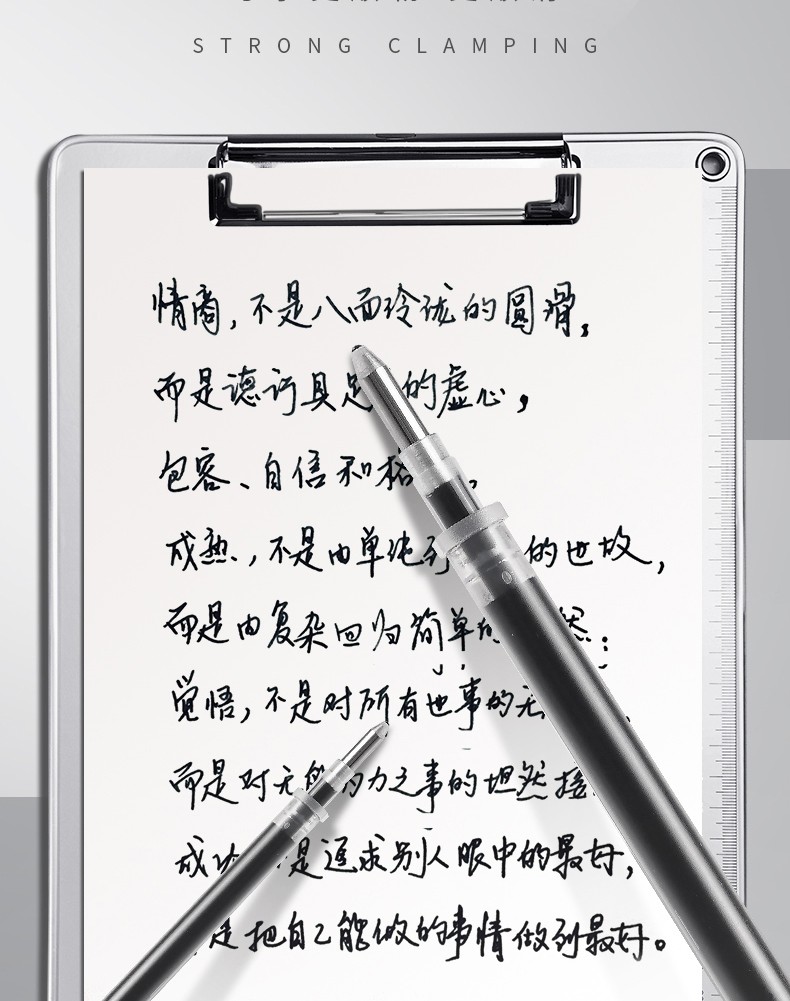 STRONG CLAMPING
情商，不是八面玲珑的圆滑，
而是德行具足的虚心，
包容、自信和格，
成熟，不是由单纯到的世故，
而是由复杂回归简单的然；
觉悟，不是对所有世事的无
而是对无能为力之事的坦然接
成功是追求别人眼中的最好，
是把自己能做的事情做到最好。